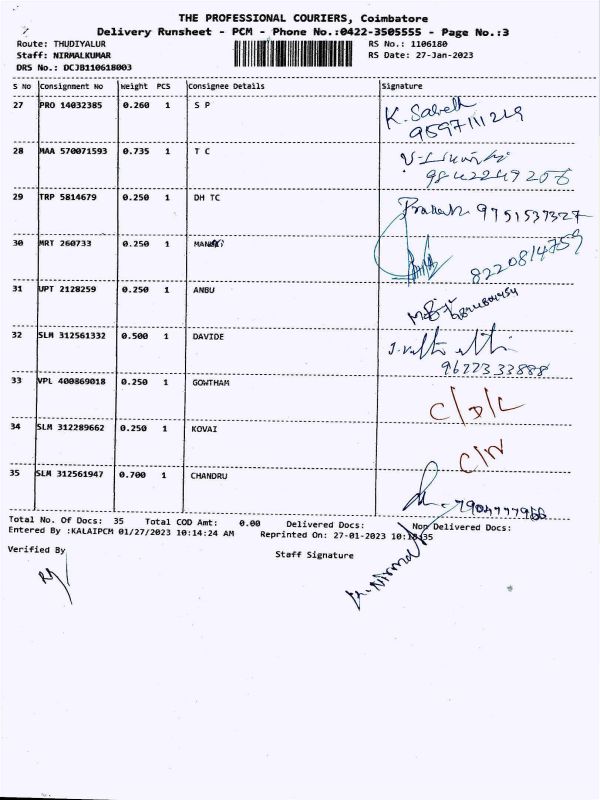 THE PROFESSIONAL COURIERS, Coimbatore
Delivery Runsheet - PCM - Phone No.:0422-3505555 - Page No.:3
Route: THUDIYALUR RS No.: 1106180
Staff: NIRMALKUMAR RS Date: 27-Jan-2023
DRS No.: DCJB110618003
S No Consignment No Weight PCS Consignee Details Signature
27 PRO 14032385 0.260 1 S P K. Sabeth
9597111219
28 MAA 570071593 0.735 1 T C
9842249206
29 TRP 5814679 0.250 1 DH TC Prakash 9751537327
30 MRT 260733 0.250 1
8220814759
31 UPT 2128259 0.250 1 ANBU
32 SLM 312561332 0.500 1 DAVIDE
9622333888
33 VPL 400869018 0.250 1 GOWTHAM C/D/L
34 SLM 312289662 0.250 1 KOVAI C/N
35 SLM 312561947 0.700 1 CHANDRU
7904777966
Total No. Of Docs: 35 Total COD Amt: 0.00 Delivered Docs: Non Delivered Docs:
Entered By :KALAIPCM 01/27/2023 10:14:24 AM Reprinted On: 27-01-2023
Verified By Staff Signature